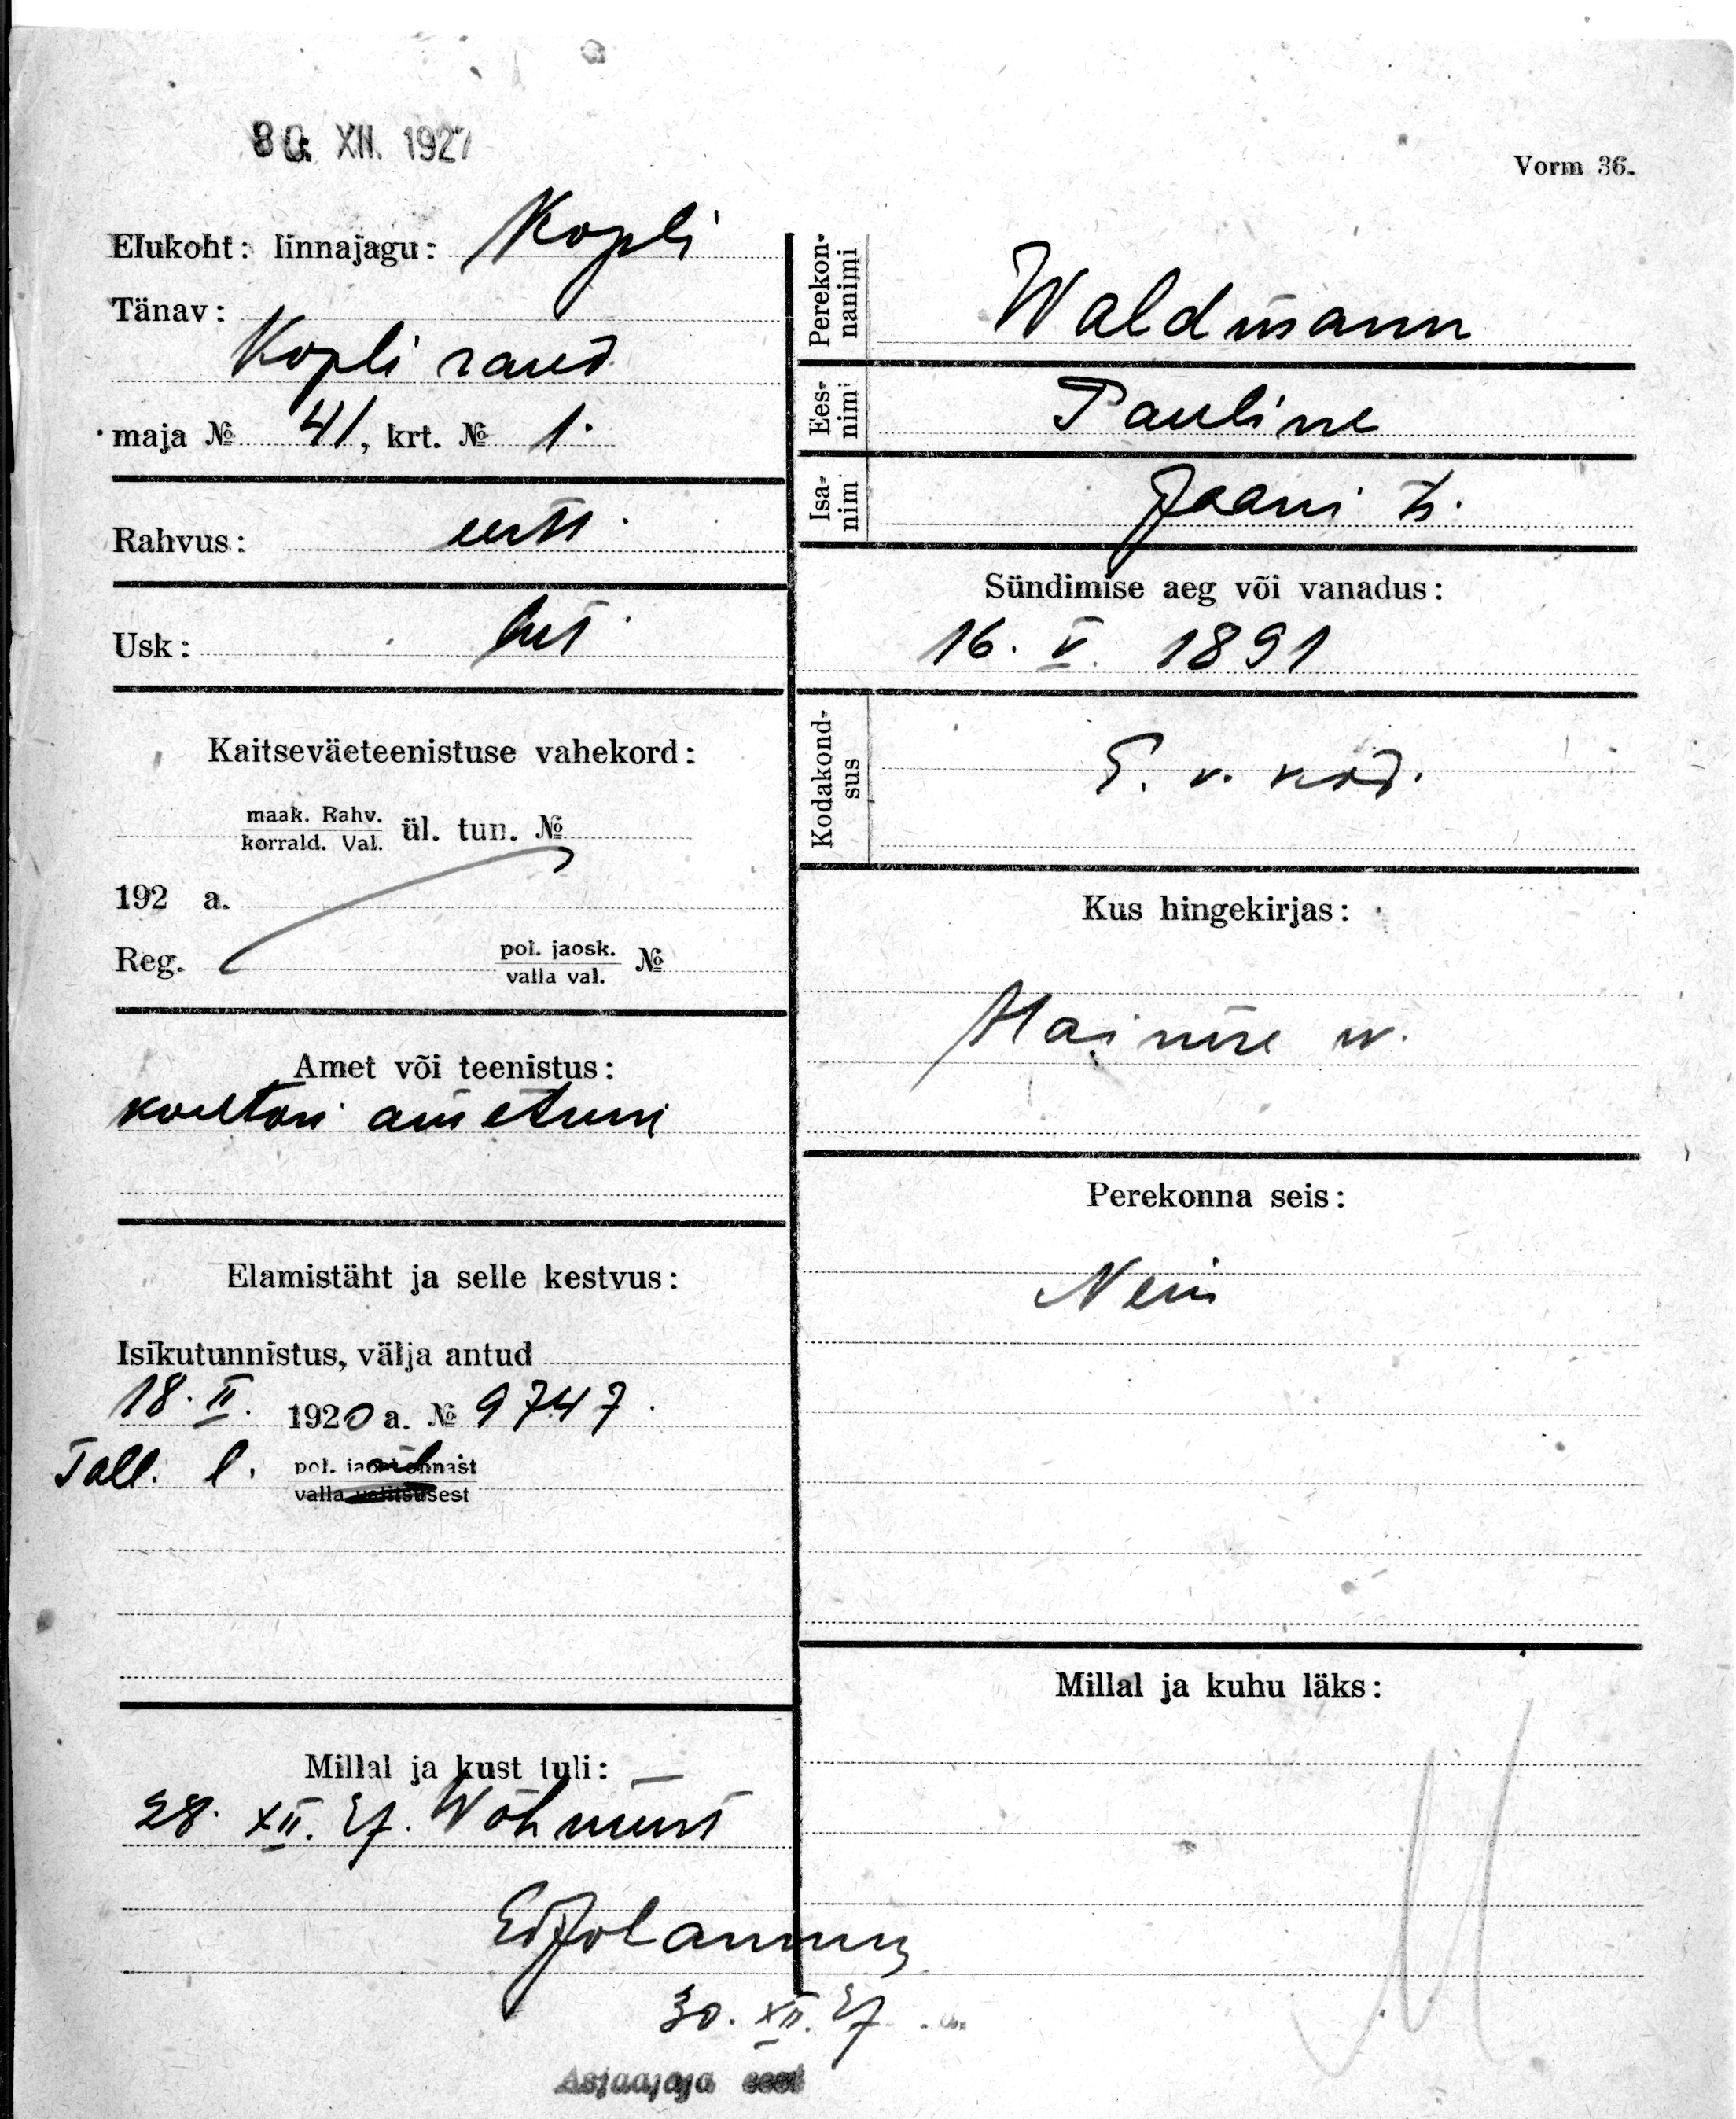 30. XII. 1927
Vorm 36.
Elukoht: linnajagu: Kopli
Tänav:
Kopli rand
maja № 41, krt. № 1.
Rahvus: eesti
Usk: lut
Kaitseväeteenistuse vahekord:
maak. Rahv.
korrald. Val. ül. tun. №
192 a.
Reg. pol. jaosk.
valla val. №
Amet või teenistus:
kontori ametnni
Elamistäht ja selle kestvus:
Isikutunnistus, välja antud
18. II. 1920 a. № 9747.
Tall. l. pol. jaoskonnast
valla valitsusest
Millal ja kust tuli:
28. XII. 27. Wõhmust
30. XII. 27
Asjaajaja eest
Perekonnanimi
Waldmann
Eesnimi
Pauline
Isanim
Jaani t.
Sündimise aeg või vanadus:
16. V. 1891
Kodakondsus
E. v. kod.
Kus hingekirjas:
w.
Perekonna seis:
Neiu
Millal ja kuhu läks: